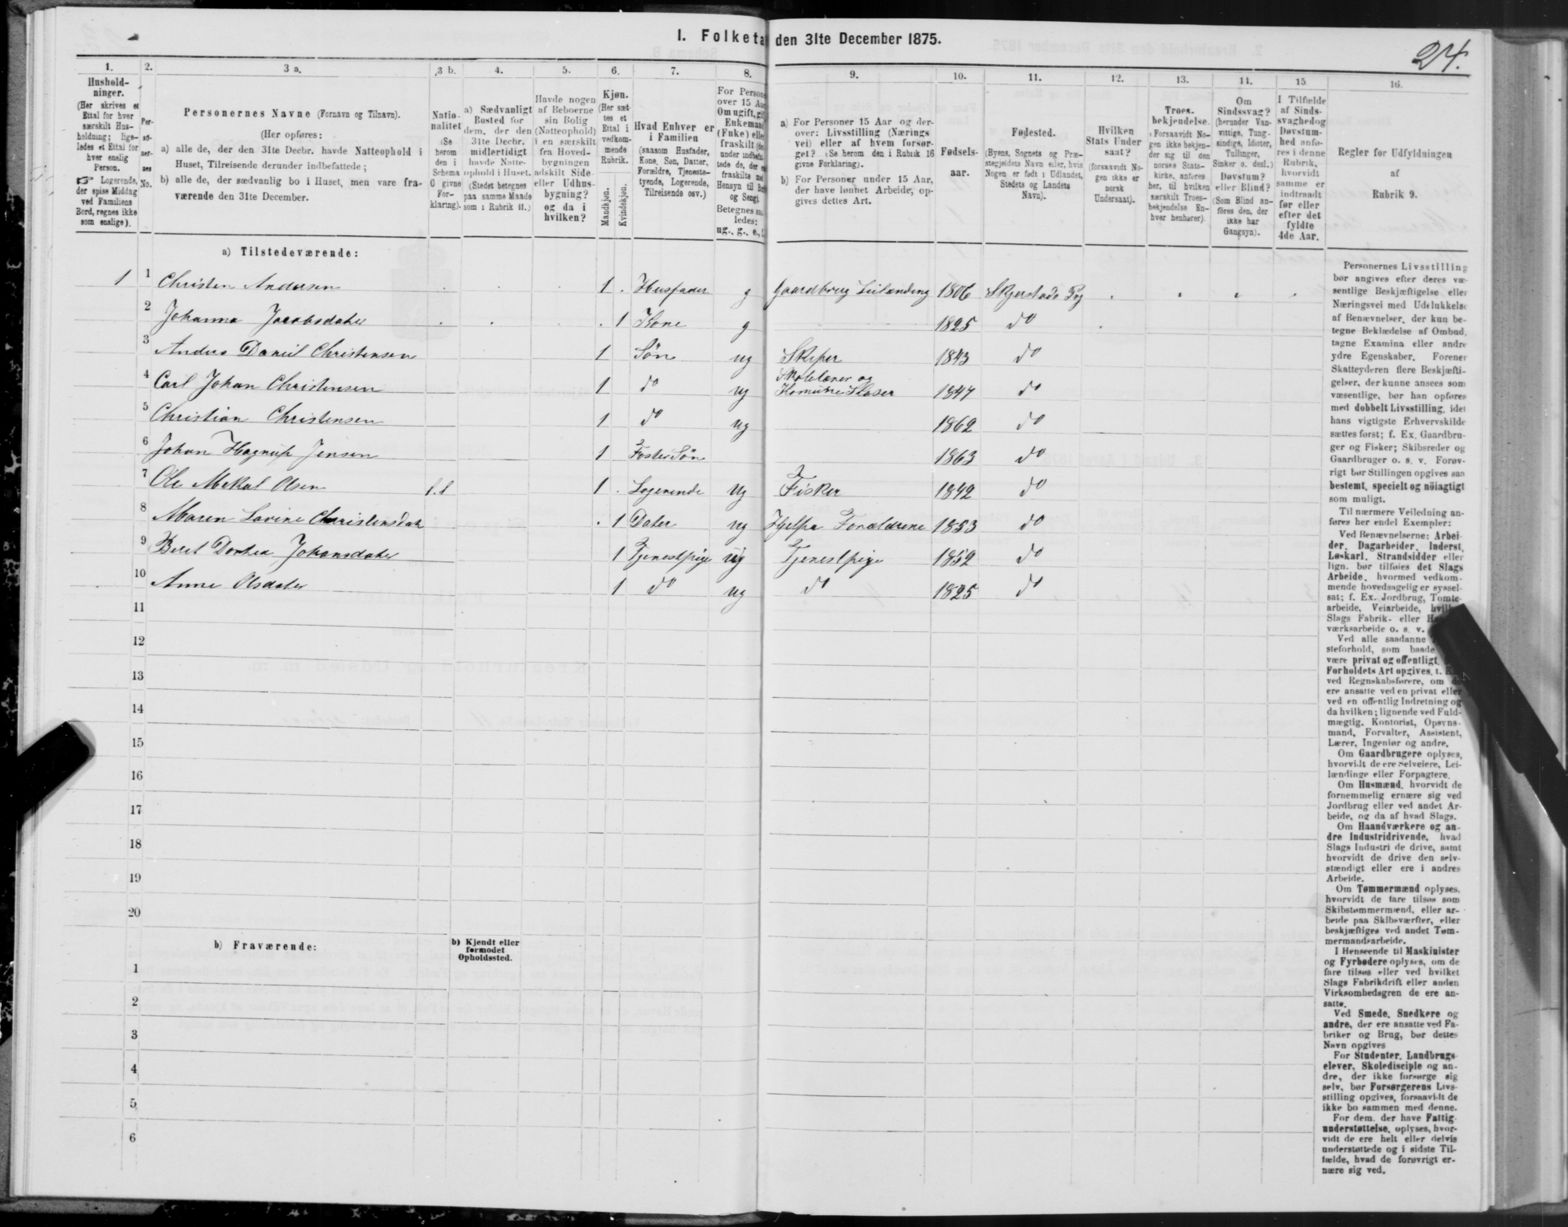 1. Folketa den 31te December 1875.
24.
1.
Hushold-
ninger.
(Her skrives et
Ettal for hver
særskilt Hus-
holdning; lige-
ledes et Ettal for
hver enslig
Person.
☞ Logerende,
der spise Middag
ved Familiens
Bord, regnes ikke
som enslige).
2.
Per-
so-
ner-
nes
No.
3 a.
Personernes Navne (Fornavn og Tilnavn).
(Her opføres:
a) alle de, der den 31te Decbr. havde Natteophold i
Huset, Tilreisende derunder indbefattede;
b) alle de, der sædvanlig bo i Huset, men vare fra-
værende den 31te December.
3 b.
Natio-
nalitet
(Se
herom
den i
Schema
C givne
For-
klaring).
4.
a) Sædvanligt
Bosted for
dem, der den
31te Decbr.
midlertidigt
havde Natte-
ophold i Huset.
(Stedet betegnes
paa samme Maade
som i Rubrik 11.)
5.
Havde nogen
af Beboerne
sin Bolig
(Natteophold)
i en særskilt
fra Hoved-
bygningen
adskilt Side-
eller Udhus-
bygning?
og da i
hvilken?
6.
Kjøn.
(Her sæt-
tes et
Ettal i
vedkom-
mende
Rubrik.
Mandkjøn.
Kvindekjøn.
7.
Hvad Enhver er
i Familien
(saasom Husfader,
Kone, Søn, Datter,
Forældre, Tjeneste-
tyende, Logerende,
Tilreisende osv.)
8.
For Person
over 15 Aa
Om ugift, g
Enkeman
(Enke) elle
fraskilt (de
under indbefa
tede de, der
fraskilte med
Hensyn til Bo
og Seng).
Betegnes sa
ledes:
ug., g., e.,
9.
a) For Personer 15 Aar og der-
over: Livsstilling (Nærings-
vei) eller af hvem forsør-
get? (Se herom den i Rubrik 16
givne Forklaring).
b) For Personer under 15 Aar,
der have lønnet Arbeide, op-
gives dettes Art.
10.
Fødsels-
aar.
11.
Fødested.
(Byens, Sognets og Præ-
stegjeldets Navn eller, hvis
Nogen er født i Udlandet,
Stedets og Landets
Navn).
12.
Hvilken
Stats Under
saat?
(forsaavidt No-
gen ikke er
norsk
Undersaat).
13.
Troes-
bekjendelse.
(Forsaavidt No-
gen ikke bekjen-
der sig til den
norske Stats-
kirke, anføres
her, til hvilken
særskilt Troes-
bekjendelse En-
hver henhører).
14.
Om
Sindssvag?
(herunder Van-
vittige, Tung-
sindige, Idioter,
Tullinger,
Sinker o. desl.)
Døvstum?
eller Blind?
(Som Blind an-
føres den, der
ikke har
Gangsyn).
15
I Tilfælde
af Sinds-
svaghed og
Døvstum-
hed anfø-
res i denne
Rubrik,
hvorvidt
samme er
indtraadt
før eller
efter det
fyldte
4de Aar.
16.
Regler for Udfyldningen
af
Rubrik 9.
a) Tilstedeværende:
1 1 Christen Andersen 1 Husfader g Gaardbrug Leilænding 1806 Skjerstads Pg
2 Johanna Jacobsdater 1 Kone g 1825 do
3 Anders Daniel Christensen 1 Søn ug Skiper 1843 do
4 Carl Johan Christensen 1 do ug Skolelærer og
1847 do
5 Christian Christensen 1 do ug 1862 do
6 Johan Hagrup Jensen 1 Foster Søn 1863 do
7 Ole Mikal Olsen f.l 1 Logerende ug Fisker 1842 do
8 Maren Lavine Christensdat 1 Dater ug Hjelpe Forældrene 1853 do
9 Beret Dortea Johansdater 1 Tjenestpige ug Tjenestpige 1852 do
10 Anne Olsdater 1 do ug do 1825 do
11
12
13
14
15
16
17
18
19
20
b) Fraværende:
b) Kjendt eller
formodet
Opholdssted.
1
2
3
4
5
6
Personernes Livsstilling
bør angives efter deres væ-
sentlige Beskjæftigelse eller
Næringsvei med Udelukkelse
af Benævnelser, der kun be-
tegne Beklædelse af Ombud,
tagne Examina eller andre
ydre Egenskaber. Forener
Skatteyderen flere Beskjæfti-
gelser, der kunne ansees som
væsentlige, bør han opføres
med dobbelt Livsstilling, idet
hans vigtigste Erhvervskilde
sættes først; f. Ex. Gaardbru-
ger og Fisker; Skibsreder og
Gaardbruger o. s. v. Forøv-
rigt bør Stillingen opgives saa
bestemt, specielt og nøiagtigt
som muligt.
Til nærmere Veiledning an-
føres her endel Exempler:
Ved Benævnelserne: Arbei-
der, Dagarbeider, Inderst,
Løskarl, Strandsidder eller
lign. bør tilføies det Slags
Arbeide, hvormed vedkom-
mende hovedsagelig er syssel-
sat; f. Ex. Jordbrug, Tomte-
arbeide, Veiarbeide, hvilket
Slags Fabrik- eller
værksarbeide o. s. v.
Ved alle saadanne
steforhold, som baade
være privat og offentligt,
Forholdets Art opgives, t.
ved Regnskabsførere, om de
ere ansatte ved en privat eller
ved en offentlig Indretning og
da hvilken; lignende ved Fuld-
mægtig, Kontorist, Opsyns-
mand, Forvalter, Assistent,
Lærer, Ingeniør og andre.
Om Gaardbrugere oplyses,
hvorvidt de ere Selveiere, Lei-
lændinge eller Forpagtere.
Om Husmænd, hvorvidt de
fornemmelig ernære sig ved
Jordbrug eller ved andet Ar-
beide, og da af hvad Slags.
Om Haandværkere og an-
dre Industridrivende, hvad
Slags Industri de drive, samt
hvorvidt de drive den selv-
stændigt eller ere i andres
Arbeide.
Om Tømmermænd oplyses,
hvorvidt de fare tilsøs som
Skibstømmermænd, eller ar-
beide paa Skibsværfter, eller
beskjæftiges ved andet Tøm-
mermandsarbeide.
I Henseende til Maskinister
og Fyrbødere oplyses, om de
fare tilsøs eller ved hvilket
Slags Fabrikdrift eller anden
Virksomhedsgren de ere an-
satte.
Ved Smede, Snedkere og
andre, der ere ansatte ved Fa-
briker og Brug, bør dettes
Navn opgives
For Studenter, Landbrugs-
elever, Skoledisciple og an-
dre, der ikke forsørge sig
selv, bør Forsørgerens Livs-
stilling opgives, forsaavidt de
ikke bo sammen med denne.
For dem, der have Fattig-
understøttelse, oplyses, hvor-
vidt de ere helt eller delvis
understøttede og i sidste Til-
fælde, hvad de forøvrigt er-
nære sig ved.